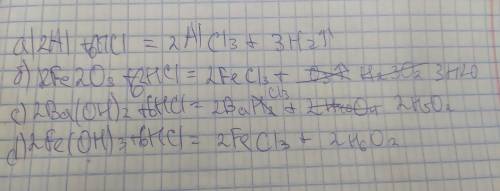 а) 2Al + 6HCl = 2AlCl3 + 3H2↑
б) 2Fe2O3 + 6HCl = 2FeCl3 + 3H2O
c) 2Ba(OH)2 + 6HCl = 2BaCl3 + 2H5O2
d) 2Fe(OH)3 + 6HCl = 2FeCl3 + 2H6O2